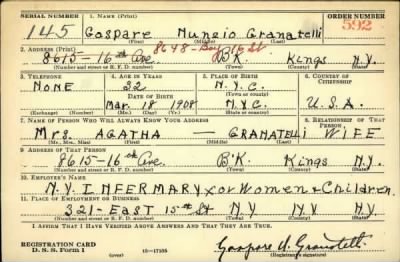 SERIAL NUMBER 1. NAME (Print) ORDER NUMBER
145 Gaspare Nunzio Granatelli 592
(First) (Middle) (Last)
2. ADDRESS (Print) 8648-Bay 16 St
8615-16th Ave. B'K. Kings N.Y.
(Number and street or R. F. D. number) (Town) (County) (State)
3. TELEPHONE 4. AGE IN YEARS 5. PLACE OF BIRTH 6. COUNTRY OF CITIZENSHIP
NONE 32 N.Y.C.
DATE OF BIRTH (Town or county)
Mar. 18 1908 N.Y.C. U.S.A.
(Exchange) (Number) (Mo.) (Day) (Yr.) (State or country)
7. NAME OF PERSON WHO WILL ALWAYS KNOW YOUR ADDRESS 8. RELATIONSHIP OF THAT PERSON
Mrs. AGATHA — GRANATELLI WIFE
(Mr., Mrs., Miss) (First) (Middle) (Last)
9. ADDRESS OF THAT PERSON
8615-16th Ave. B'K. Kings N.Y.
(Number and street or R. F. D. number) (Town) (County) (State)
10. EMPLOYER'S NAME
N.Y. INFERMARY for Women & Children
11. PLACE OF EMPLOYMENT OR BUSINESS
321-EAST 15th St NY NY N.Y.
(Number and street or R. F. D. number) (Town) (County) (State)
I AFFIRM THAT I HAVE VERIFIED ABOVE ANSWERS AND THAT THEY ARE TRUE.
REGISTRATION CARD
D. S. S. Form 1 16—17105 Gaspare N. Granatelli
(Registrant's signature)